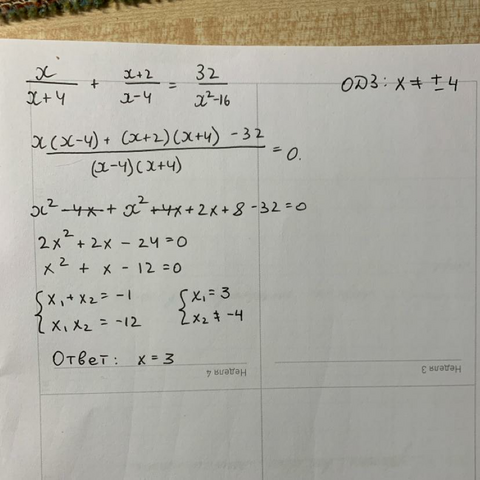 x/(x+4) + (x+2)/(x-4) = 32/(x²-16)   ОДЗ: x ≠ ±4
(x(x-4) + (x+2)(x+4) - 32)/((x-4)(x+4)) = 0.
x² - 4x + x² + 4x + 2x + 8 - 32 = 0
2x² + 2x - 24 = 0
x² + x - 12 = 0
{ x₁ + x₂ = -1   { x₁ = 3
{ x₁ x₂ = -12   { x₂ ≠ -4
Ответ: x = 3
Неделя 4   Неделя 3